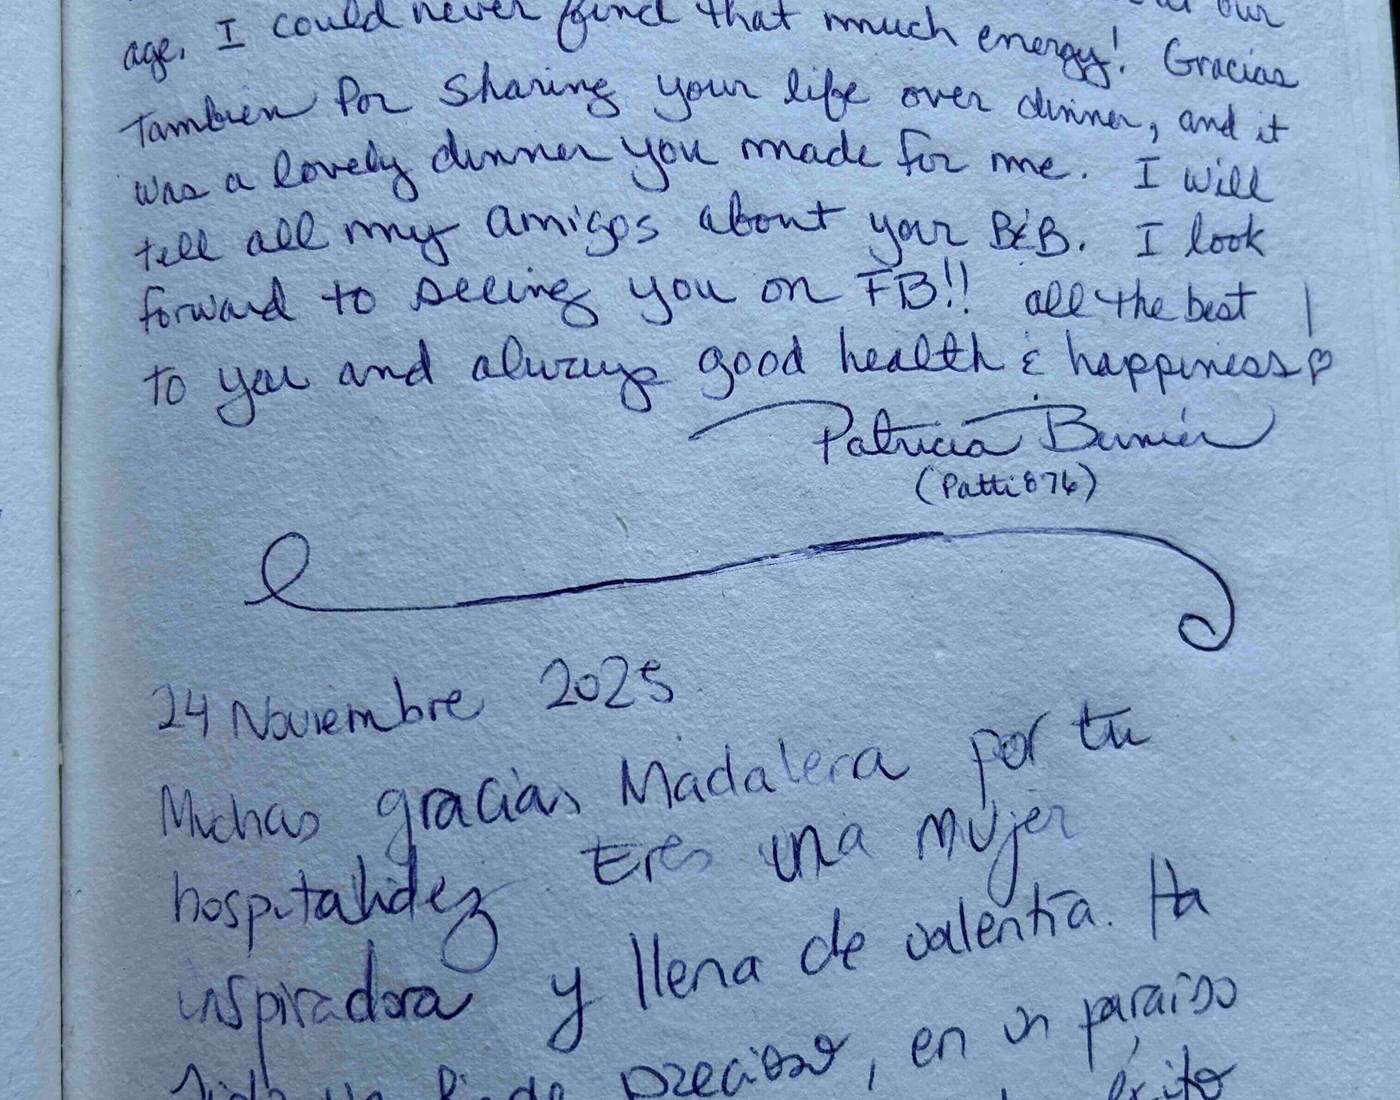 our
age. I could never find that much energy! Gracias
Tambien Por sharing your life over dinner, and it
was a lovely dinner you made for me. I will
tell all my amigos about your B&B. I look
forward to seeing you on FB!! all the best
to you and always good health & happiness ♡
Patricia
(Patti876)
24 Noviembre 2025
Muchas gracias Madalena por tu
hospitalidez. Eres una mujer
inspiradora y llena de valentía. Ha
sido un precioso, en un paraíso
éxito